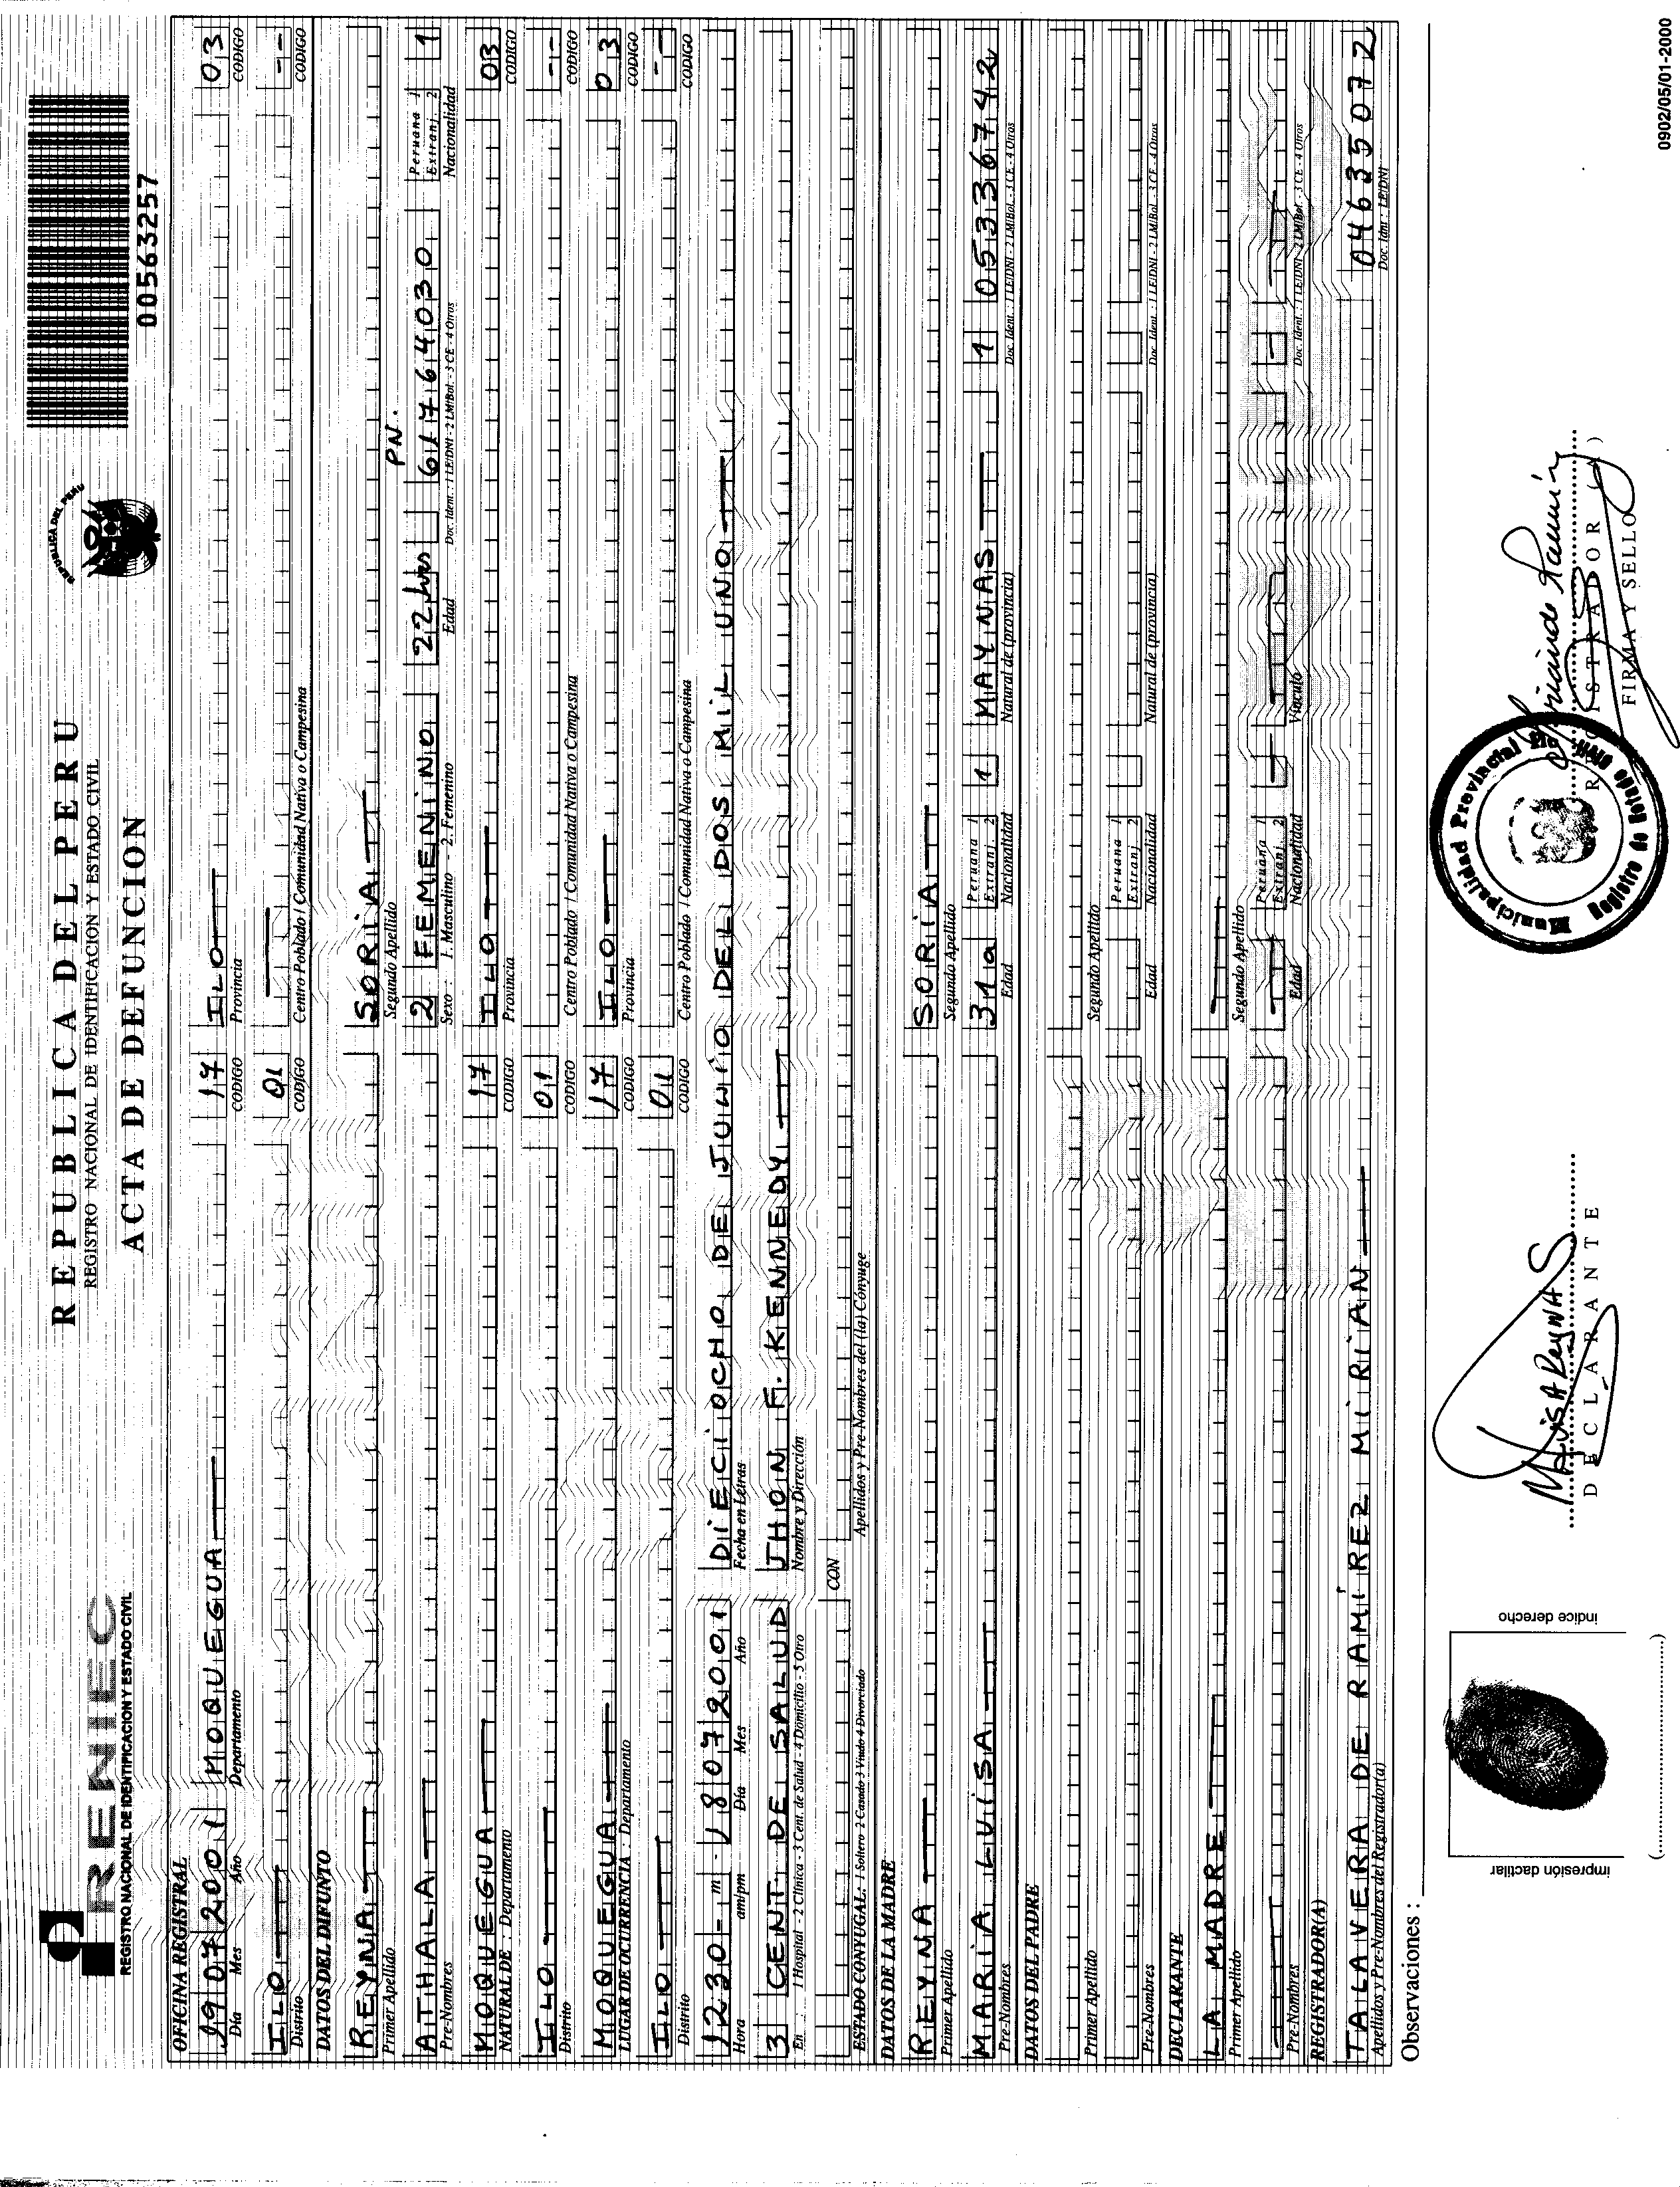 RENIEC
REGISTRO NACIONAL DE IDENTIFICACION Y ESTADO CIVIL
REPUBLICA DEL PERU
REPUBLICA DEL PERU
REGISTRO NACIONAL DE IDENTIFICACION Y ESTADO CIVIL
ACTA DE DEFUNCION
00563257
OFICINA REGISTRAL
19 07 2001 MOQUEGUA 17 ILO 03
Día Mes Año Departamento CODIGO Provincia CODIGO
ILO 01 --
Distrito CODIGO Centro Poblado / Comunidad Nativa o Campesina CODIGO
DATOS DEL DIFUNTO
REYNA SORIA
Primer Apellido Segundo Apellido
PN.
ATHALA 2 FEMENINO 22 61764030 Peruana 1 Extranj. 2 1
Pre-Nombres Sexo : 1. Masculino - 2. Femenino Edad Doc. Ident. : 1 LE/DNI - 2 LM/Bol. - 3 CE - 4 Otros Nacionalidad
MOQUEGUA 17 ILO 03
NATURAL DE : Departamento CODIGO Provincia CODIGO
ILO 01 --
Distrito CODIGO Centro Poblado / Comunidad Nativa o Campesina CODIGO
MOQUEGUA 17 ILO 03
LUGAR DE OCURRENCIA : Departamento CODIGO Provincia CODIGO
ILO 01 --
Distrito CODIGO Centro Poblado / Comunidad Nativa o Campesina CODIGO
1230 - m - 18 07 2001 DIECIOCHO DE JUNIO DEL DOS MIL UNO
Hora am/pm Día Mes Año Fecha en Letras
3 CENT. DE SALUD JHON F. KENNEDY
En : 1 Hospital - 2 Clínica - 3 Cent. de Salud - 4 Domicilio - 5 Otro Nombre y Dirección
CON
ESTADO CONYUGAL: 1 Soltero 2 Casado 3 Viudo 4 Divorciado Apellidos y Pre-Nombres del (la) Cónyuge
DATOS DE LA MADRE
REYNA SORIA
Primer Apellido Segundo Apellido
MARIA LUISA 31a Peruana 1 Extranj. 2 1 MAYNAS 1 05336742
Pre-Nombres Edad Nacionalidad Natural de (provincia) Doc. Ident. : 1 LE/DNI - 2 LM/Bol. - 3 CE - 4 Otros
DATOS DEL PADRE
Primer Apellido Segundo Apellido
Peruana 1 Extranj. 2
Pre-Nombres Edad Nacionalidad Natural de (provincia) Doc. Ident. : 1 LE/DNI - 2 LM/Bol. - 3 CE - 4 Otros
DECLARANTE
LA MADRE
Primer Apellido Segundo Apellido
Peruana 1 Extranj. 2
Pre-Nombres Edad Nacionalidad Vínculo Doc. Ident. : 1 LE/DNI - 2 LM/Bol. - 3 CE - 4 Otros
REGISTRADOR(A)
TALAVERA DE RAMÍREZ MIRIAN 04635072
Apellidos y Pre-Nombres del Registrador(a) Doc. Idnt : LE/DNI
Observaciones :
impresión dactilar
indice derecho
DECLARANTE
Municipalidad Provincial Ilo
Registro de Estado Civil
REGISTRADOR (A)
FIRMA Y SELLO
0902/05/01-2000